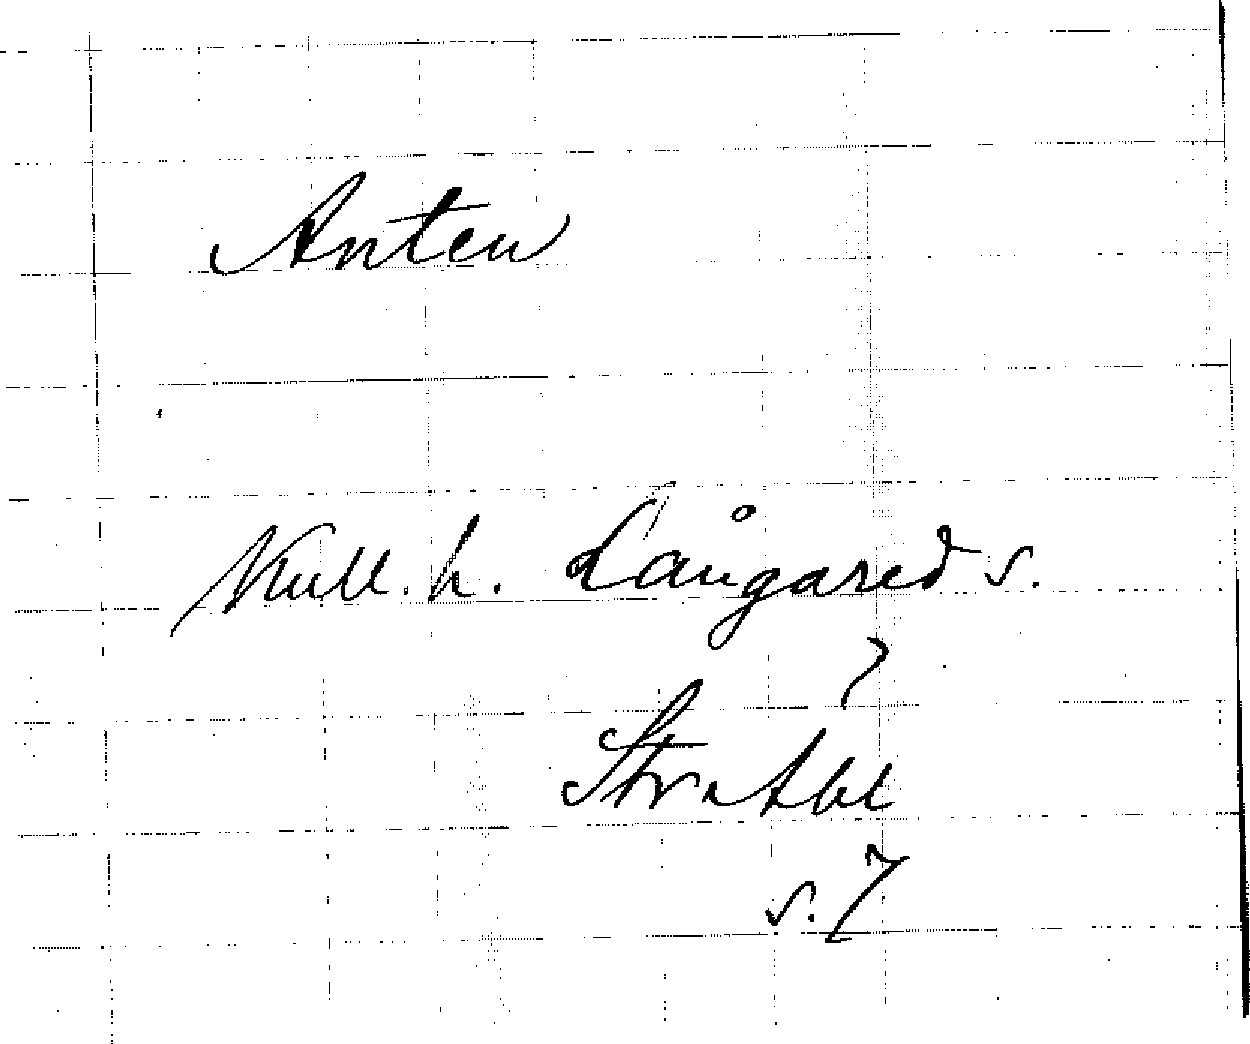 Anten
Kull. h. Långared s.
7
Str. Abl
s. 7